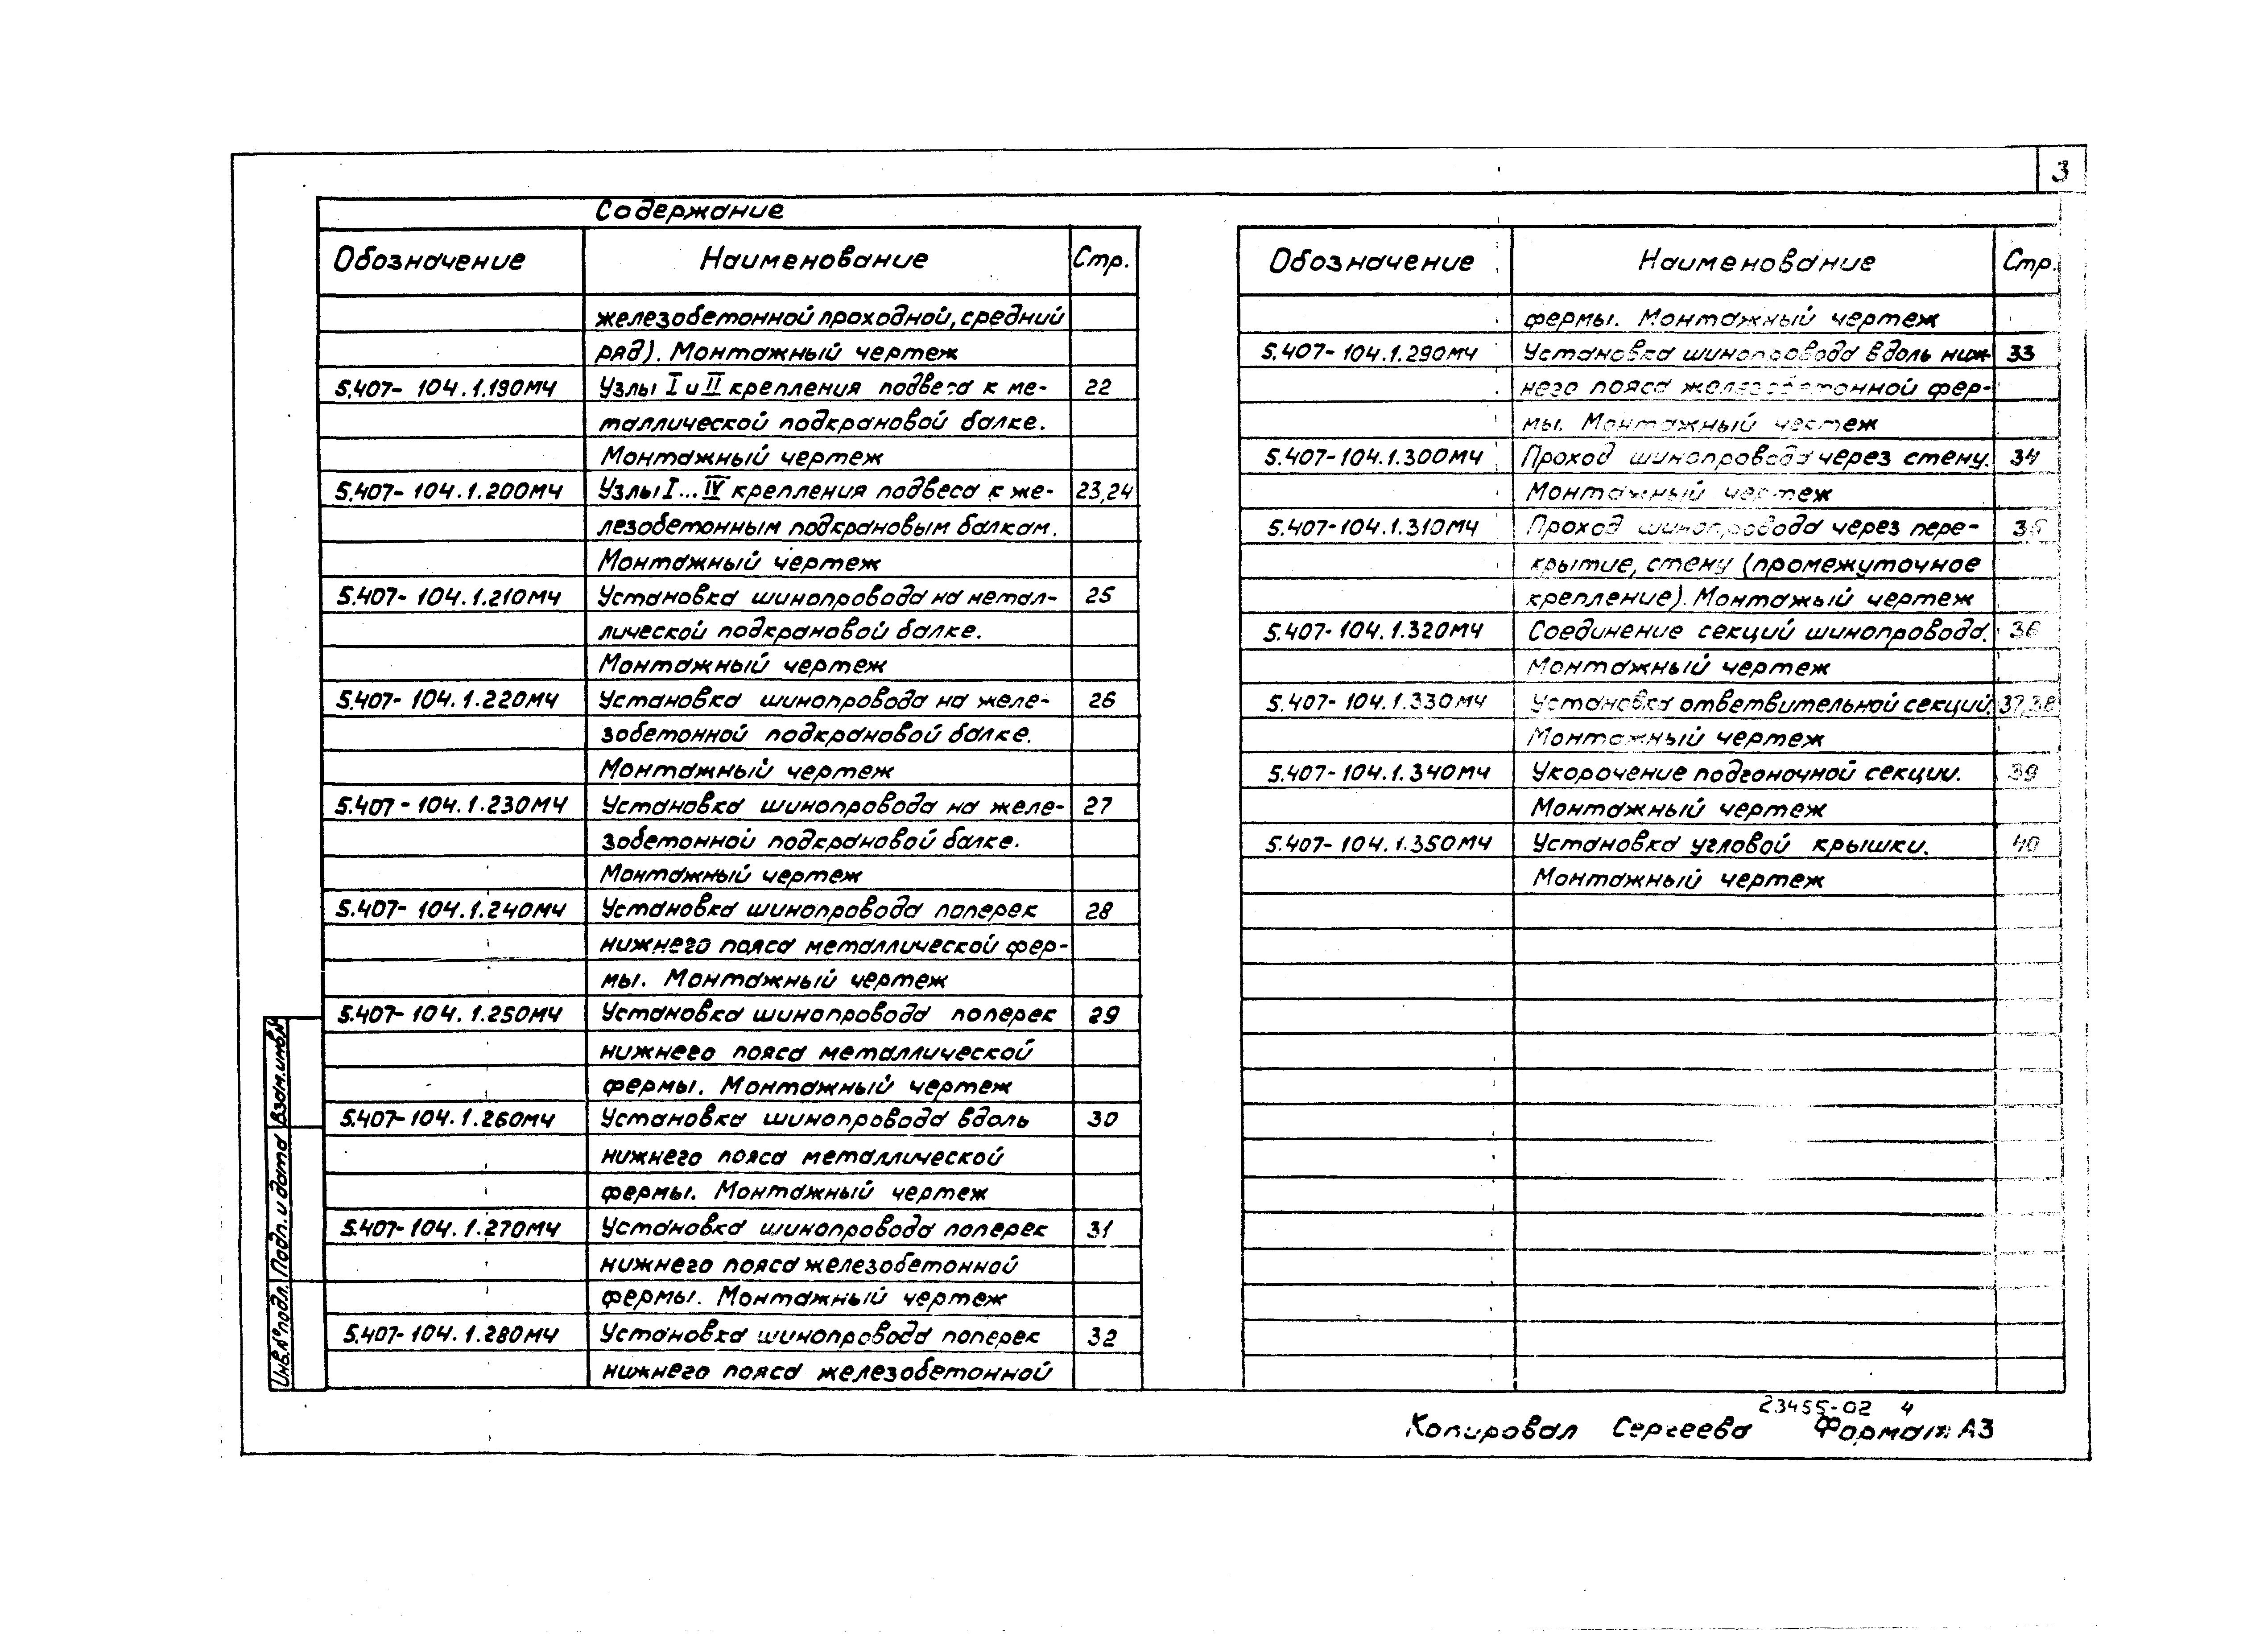 3
Содержание
Обозначение Наименование Стр.
железобетонной проходной, средний
ряд). Монтажный чертеж
5.407-104.1.190МЧ Узлы I и II крепления подвеса к ме- 22
таллической подкрановой балке.
Монтажный чертеж
5.407-104.1.200МЧ Узлы I...IV крепления подвеса к же- 23,24
лезобетонным подкрановым балкам.
Монтажный чертеж
5.407-104.1.210МЧ Установка шинопровода на метал- 25
лической подкрановой балке.
Монтажный чертеж
5.407-104.1.220МЧ Установка шинопровода на желе- 26
зобетонной подкрановой балке.
Монтажный чертеж
5.407-104.1.230МЧ Установка шинопровода на желе- 27
зобетонной подкрановой балке.
Монтажный чертеж
5.407-104.1.240МЧ Установка шинопровода поперек 28
нижнего пояса металлической фер-
мы. Монтажный чертеж
5.407-104.1.250МЧ Установка шинопровода поперек 29
нижнего пояса металлической
фермы. Монтажный чертеж
5.407-104.1.260МЧ Установка шинопровода вдоль 30
нижнего пояса металлической
фермы. Монтажный чертеж
5.407-104.1.270МЧ Установка шинопровода поперек 31
нижнего пояса железобетонной
фермы. Монтажный чертеж
5.407-104.1.280МЧ Установка шинопровода поперек 32
нижнего пояса железобетонной
Обозначение Наименование Стр.
фермы. Монтажный чертеж
5.407-104.1.290МЧ Установка шинопровода вдоль ниж- 33
него пояса железобетонной фер-
мы. Монтажный чертеж
5.407-104.1.300МЧ Проход шинопровода через стену. 34
Монтажный чертеж
5.407-104.1.310МЧ Проход шинопровода через пере-
крытие, стену (промежуточное
крепление). Монтажый чертеж
5.407-104.1.320МЧ Соединение секций шинопровода. 36
Монтажный чертеж
5.407-104.1.330МЧ Установка ответвительной секций. 37,38
Монтажный чертеж
5.407-104.1.340МЧ Укорочение подгоночной секции. 39
Монтажный чертеж
5.407-104.1.350МЧ Установка угловой крышки. 40
Монтажный чертеж
Взам.инв.№
Подп. и дата
Инв.№подл.
23455-02 4
Копировал Сергеева Формат А3